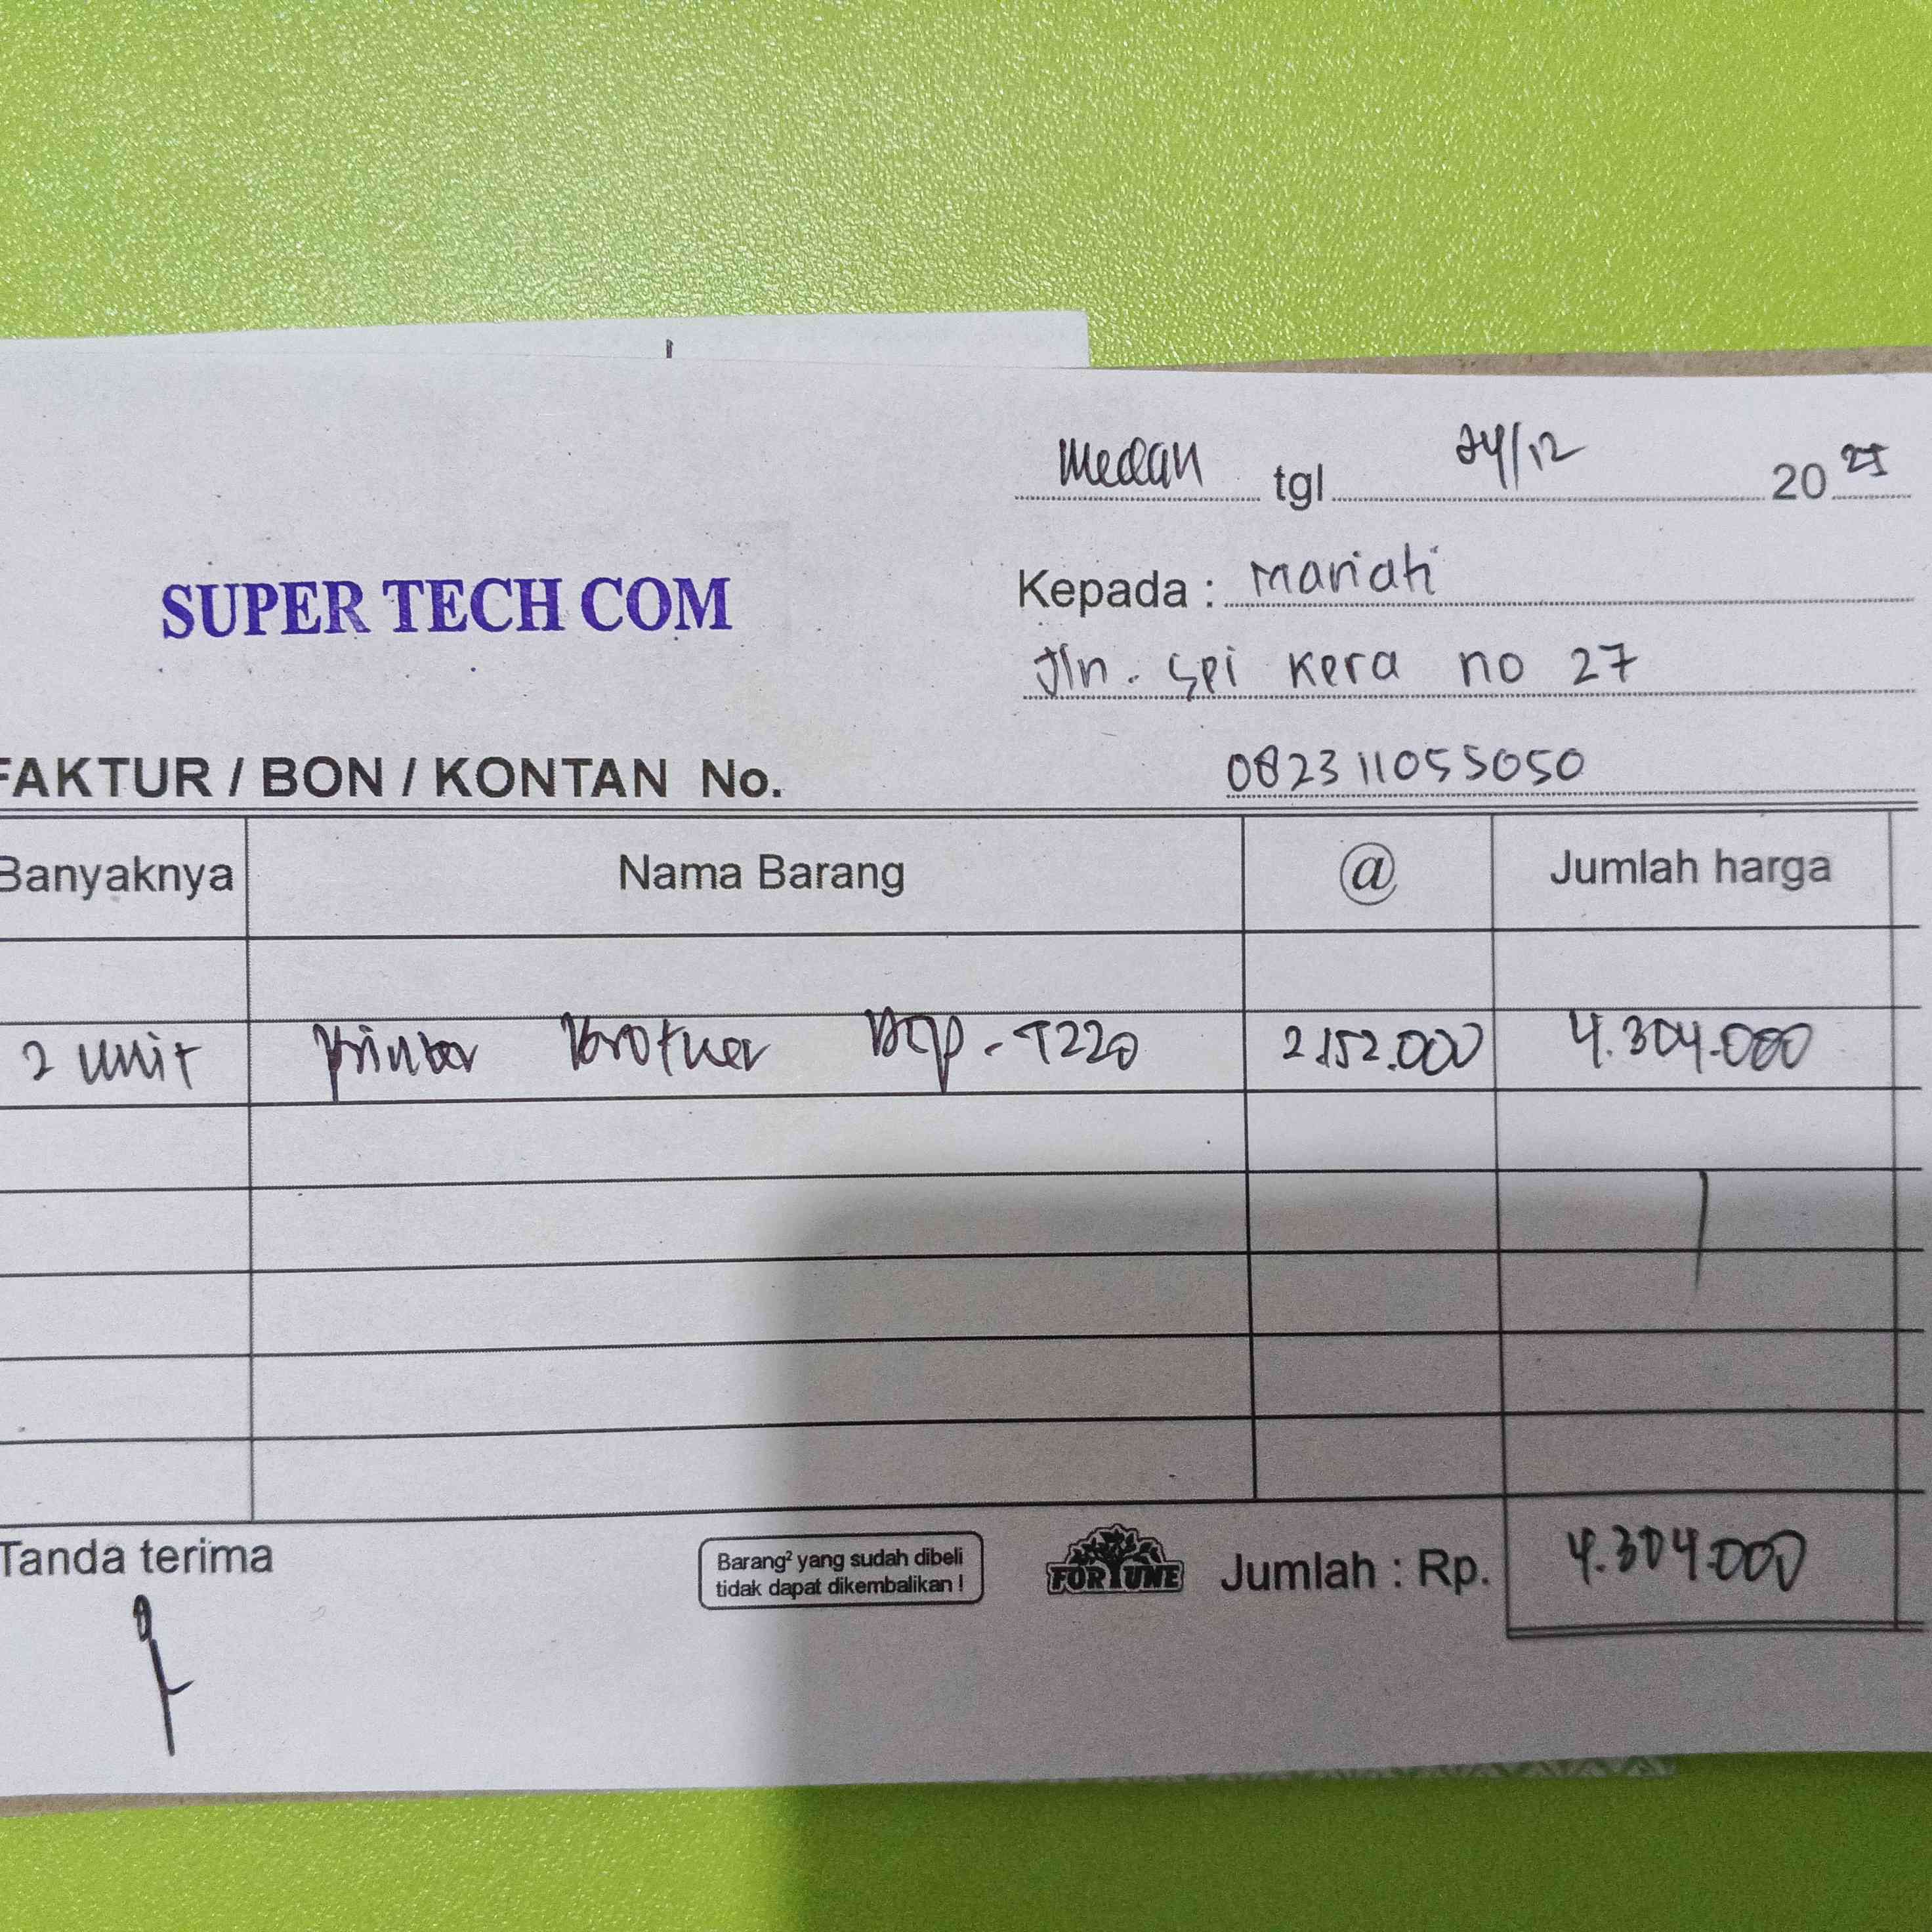 Medan tgl 24/12 20 25
SUPER TECH COM
Kepada : Mariati
Jln. Sei Kera no 27
FAKTUR / BON / KONTAN No.
082311055050
Banyaknya Nama Barang @ Jumlah harga
2 unit Printer Brother Dcp-T220 2.152.000 4.304.000
Tanda terima
Barang² yang sudah dibeli
tidak dapat dikembalikan !
FORTUNE
Jumlah : Rp. 4.304.000